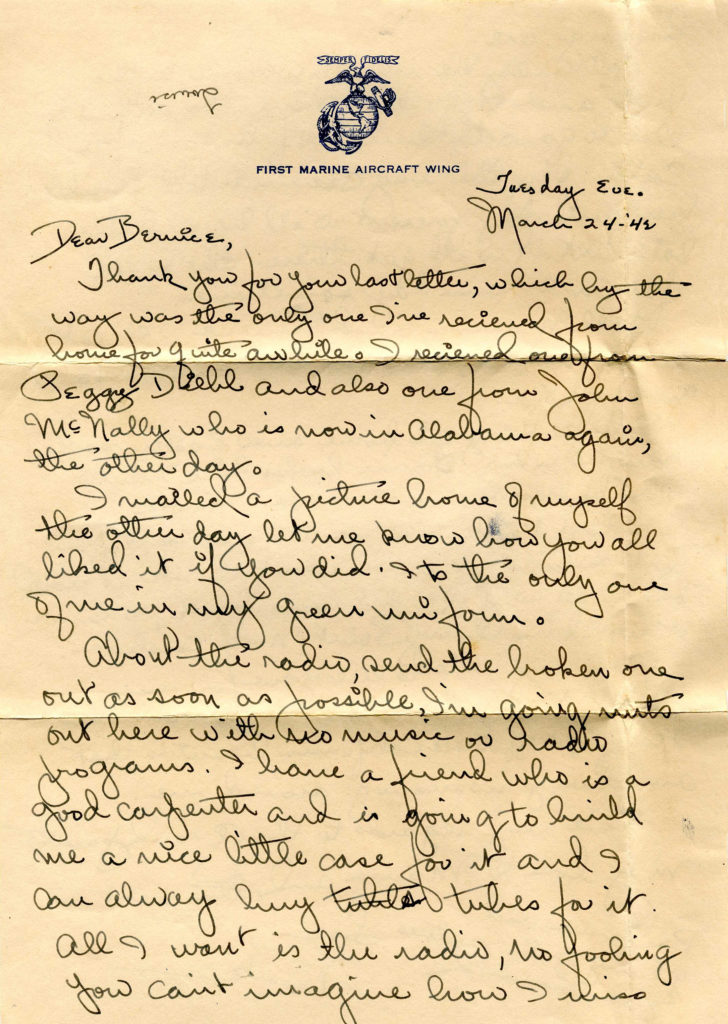 SEMPER FIDELIS
Louise
FIRST MARINE AIRCRAFT WING
Tuesday Eve.
March 24-'42
Dear Bernice,
Thank you for your last letter, which by the
way was the only one I've recieved from
home for quite awhile. I recieved one from
Peggy Diehl and also one from John
McNally who is now in Alabama again,
the other day.
I mailed a picture home of myself
the other day let me know how you all
liked it if you did. Its the only one
of me in my green uniform.
About the radio, send the broken one
out as soon as possible, I'm going nuts
out here with no music or radio
programs. I have a friend who is a
good carpenter and is going to build
me a nice little case for it and I
can alway buy tubes tubes for it.
All I want is the radio, no fooling
you can't imagine how I miss